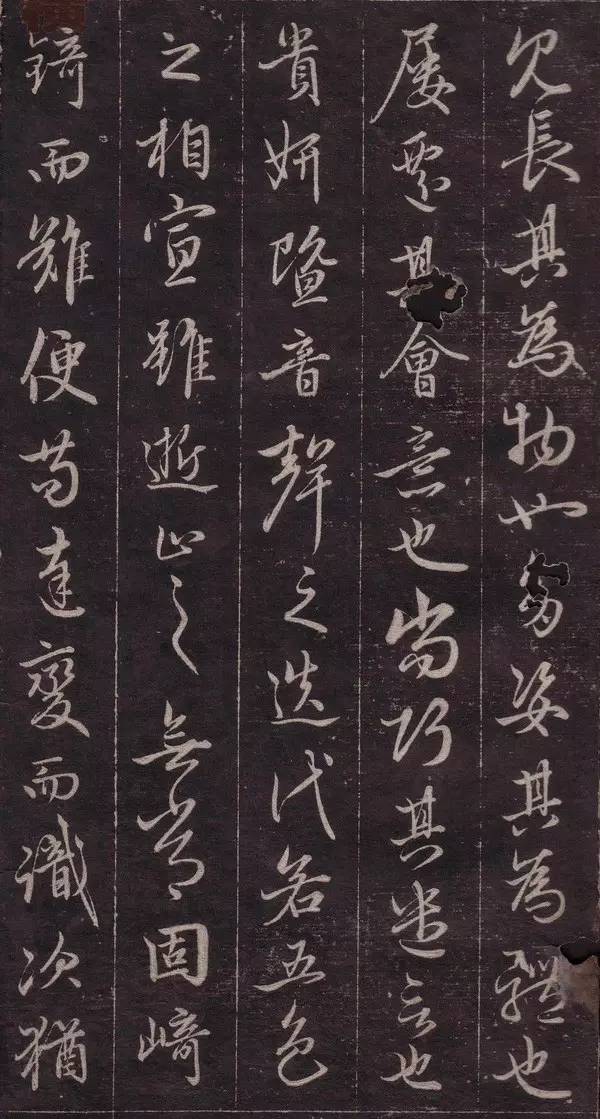 冗長其為物也多姿其為體也
屢遷其會意也尚巧其遣言也
貴妍暨音聲之迭代若五色
之相宣雖逝止之無常固崎
錡而難便苟達變而識次猶